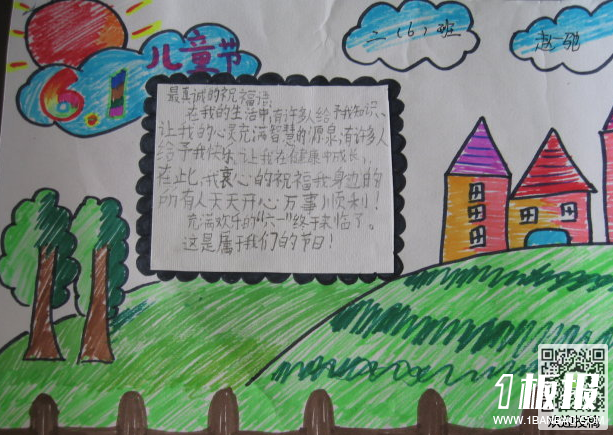 6.1
儿童节
二(6)班
赵一弛
最真诚的祝福语:
在我的生活中,有许多人给予我知识、
让我的心灵充满智慧的源泉;有许多人
给予我快乐、让我在健康中成长,
在此,我衷心的祝福我身边的
所有人天天开心万事顺利!
充满欢乐的“六一”终于来临了。
这是属于我们的节日!
1板报
WWW.1BANBAO.COM
欢迎投稿